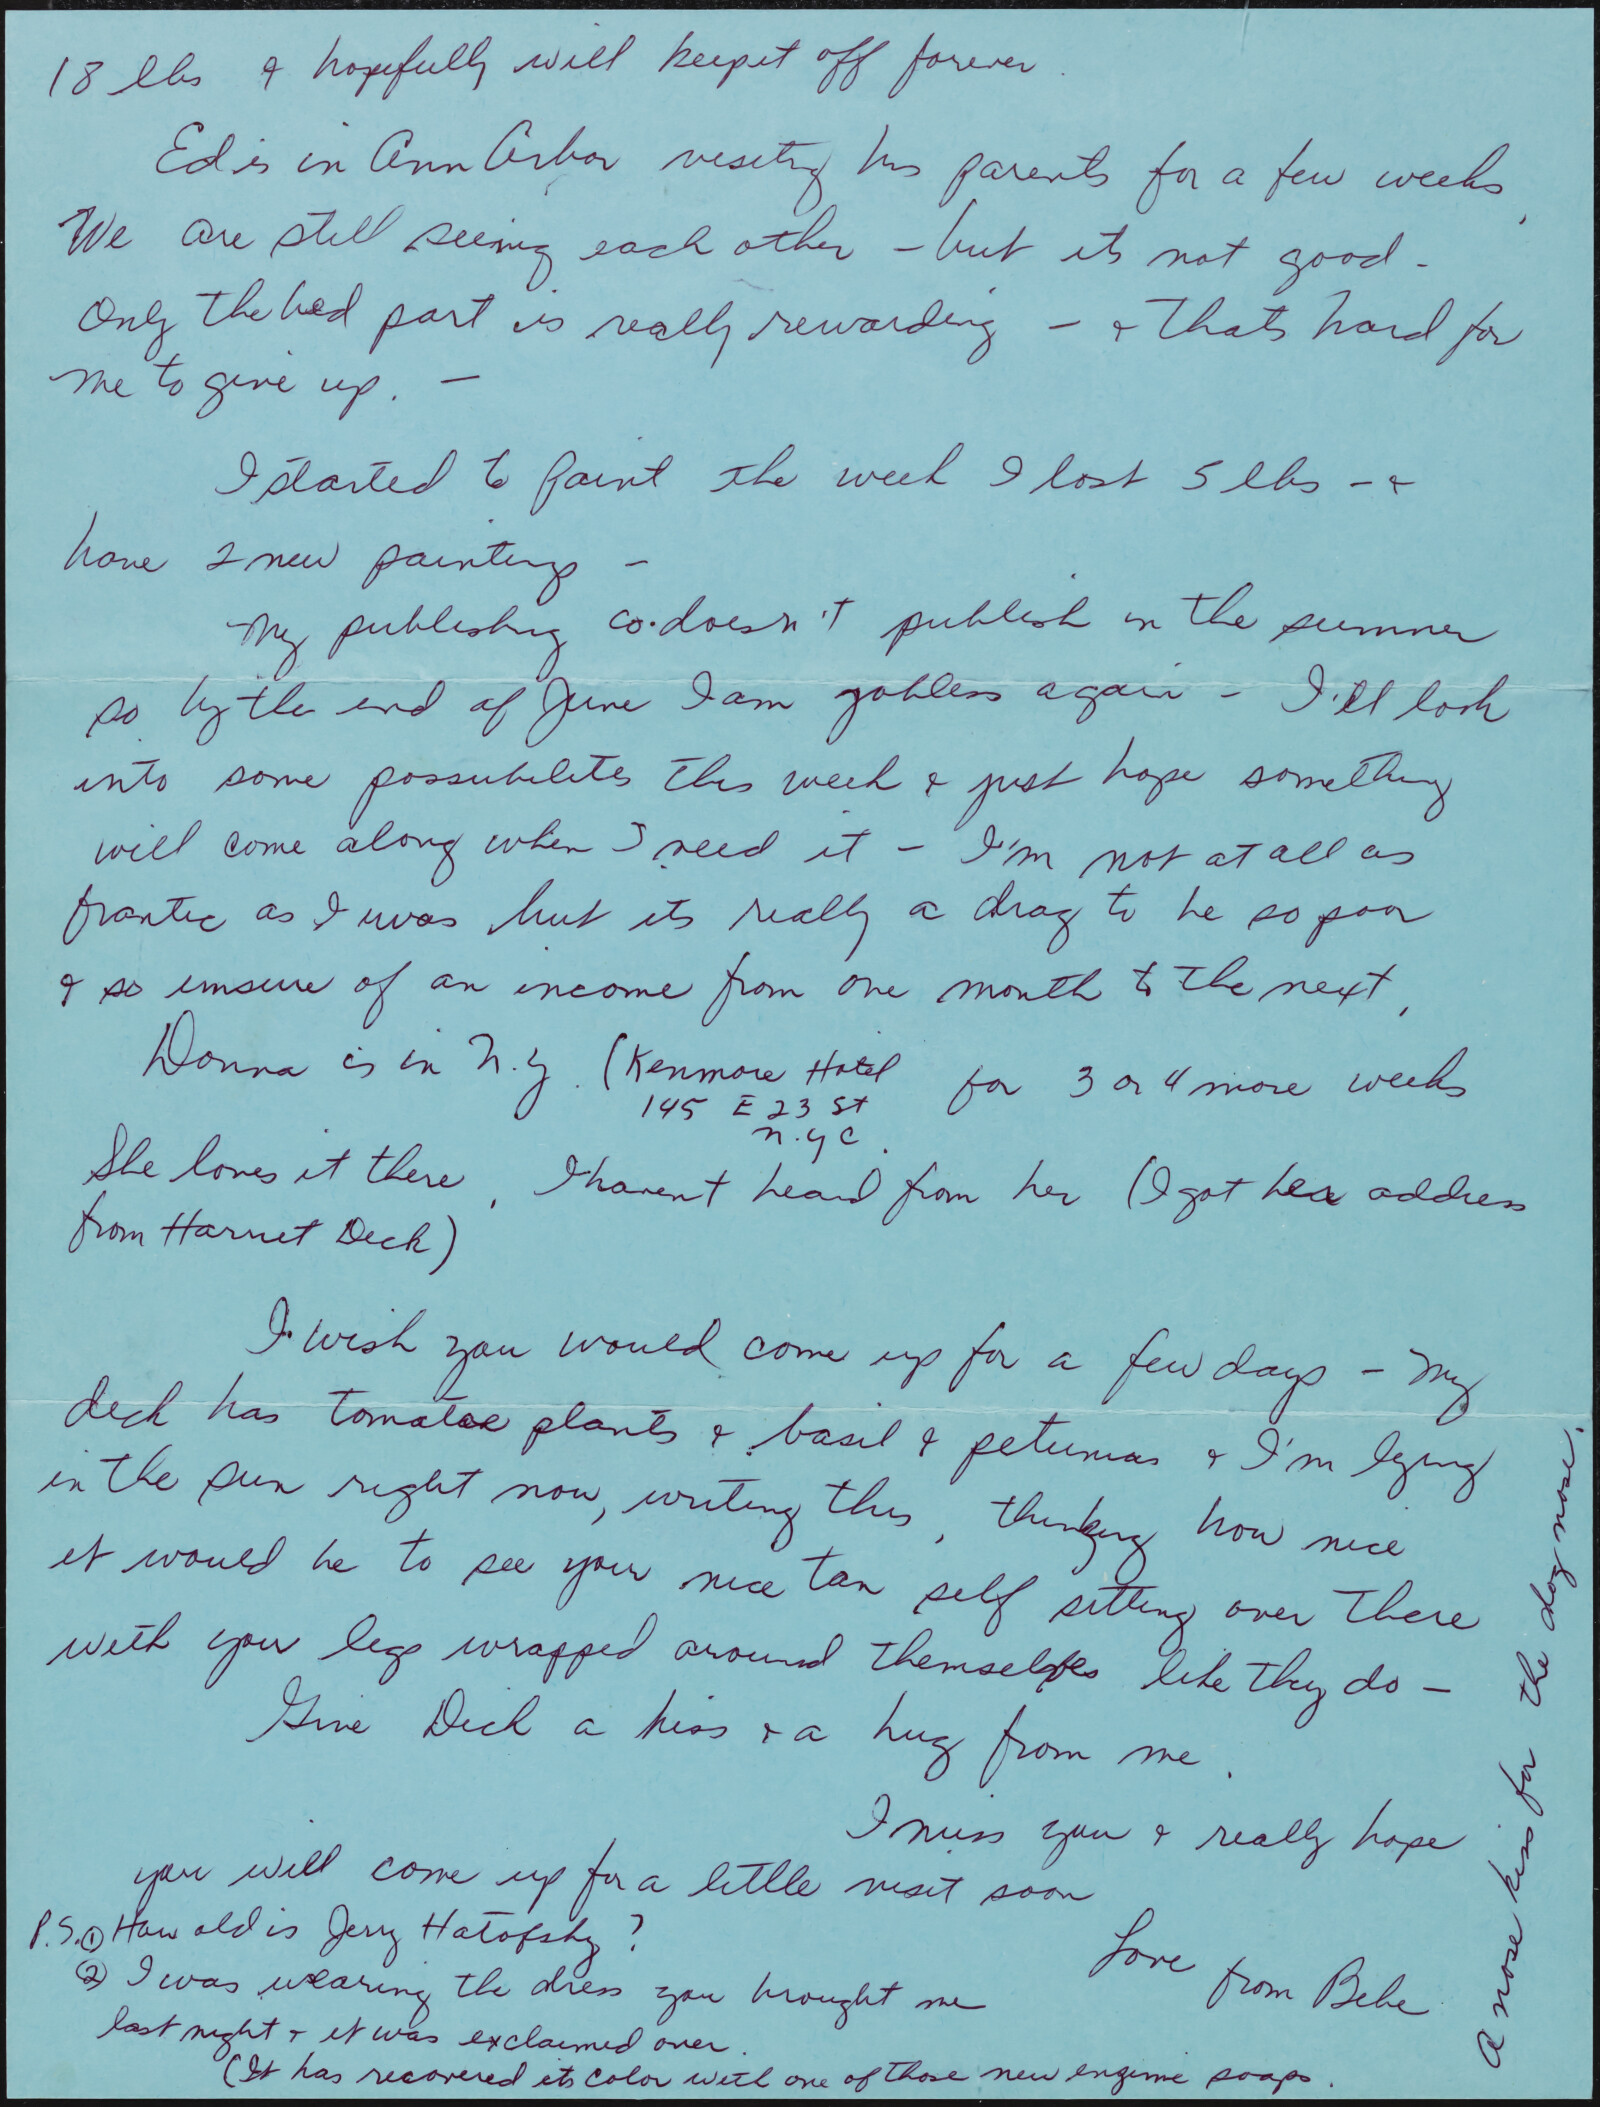 18 lbs & hopefully will keep it off forever.
Ed is in Ann Arbor visiting his parents for a few weeks.
We are still seeing each other - but its not good -
Only the bed part is really rewarding - & thats hard for
me to give up. -
I started to paint the week I lost 5 lbs - &
have 2 new paintings -
My publishing co. doesn't publish in the summer
so by the end of June I am jobless again - I'll look
into some possibilites this week & just hope something
will come along when I need it - I'm not at all as
frantic as I was but its really a drag to be so poor
& so unsure of an income from one month to the next.
Donna is in N.Y. (Kenmore Hotel for 3 or 4 more weeks
145 E 23 St
N.Y C.
She loves it there. I havent heard from her (I got her address
from Harriet Deck)
I wish you would come up for a few days - My
deck has tomatoe plants & basil & petunias & I'm lying
in the sun right now, writing this, thinking how nice
it would be to see your nice tan self sitting over there
with your legs wrapped around themselves like they do -
Give Dick a kiss & a hug from me.
I miss you & really hope
you will come up for a little visit soon
Love from Bebe
P.S. ① How old is Jerry Hatofsky?
② I was wearing the dress you brought me
last night & it was exclaimed over.
(It has recovered its color with one of those new enzime soaps.
A nose kiss for the dog nose.